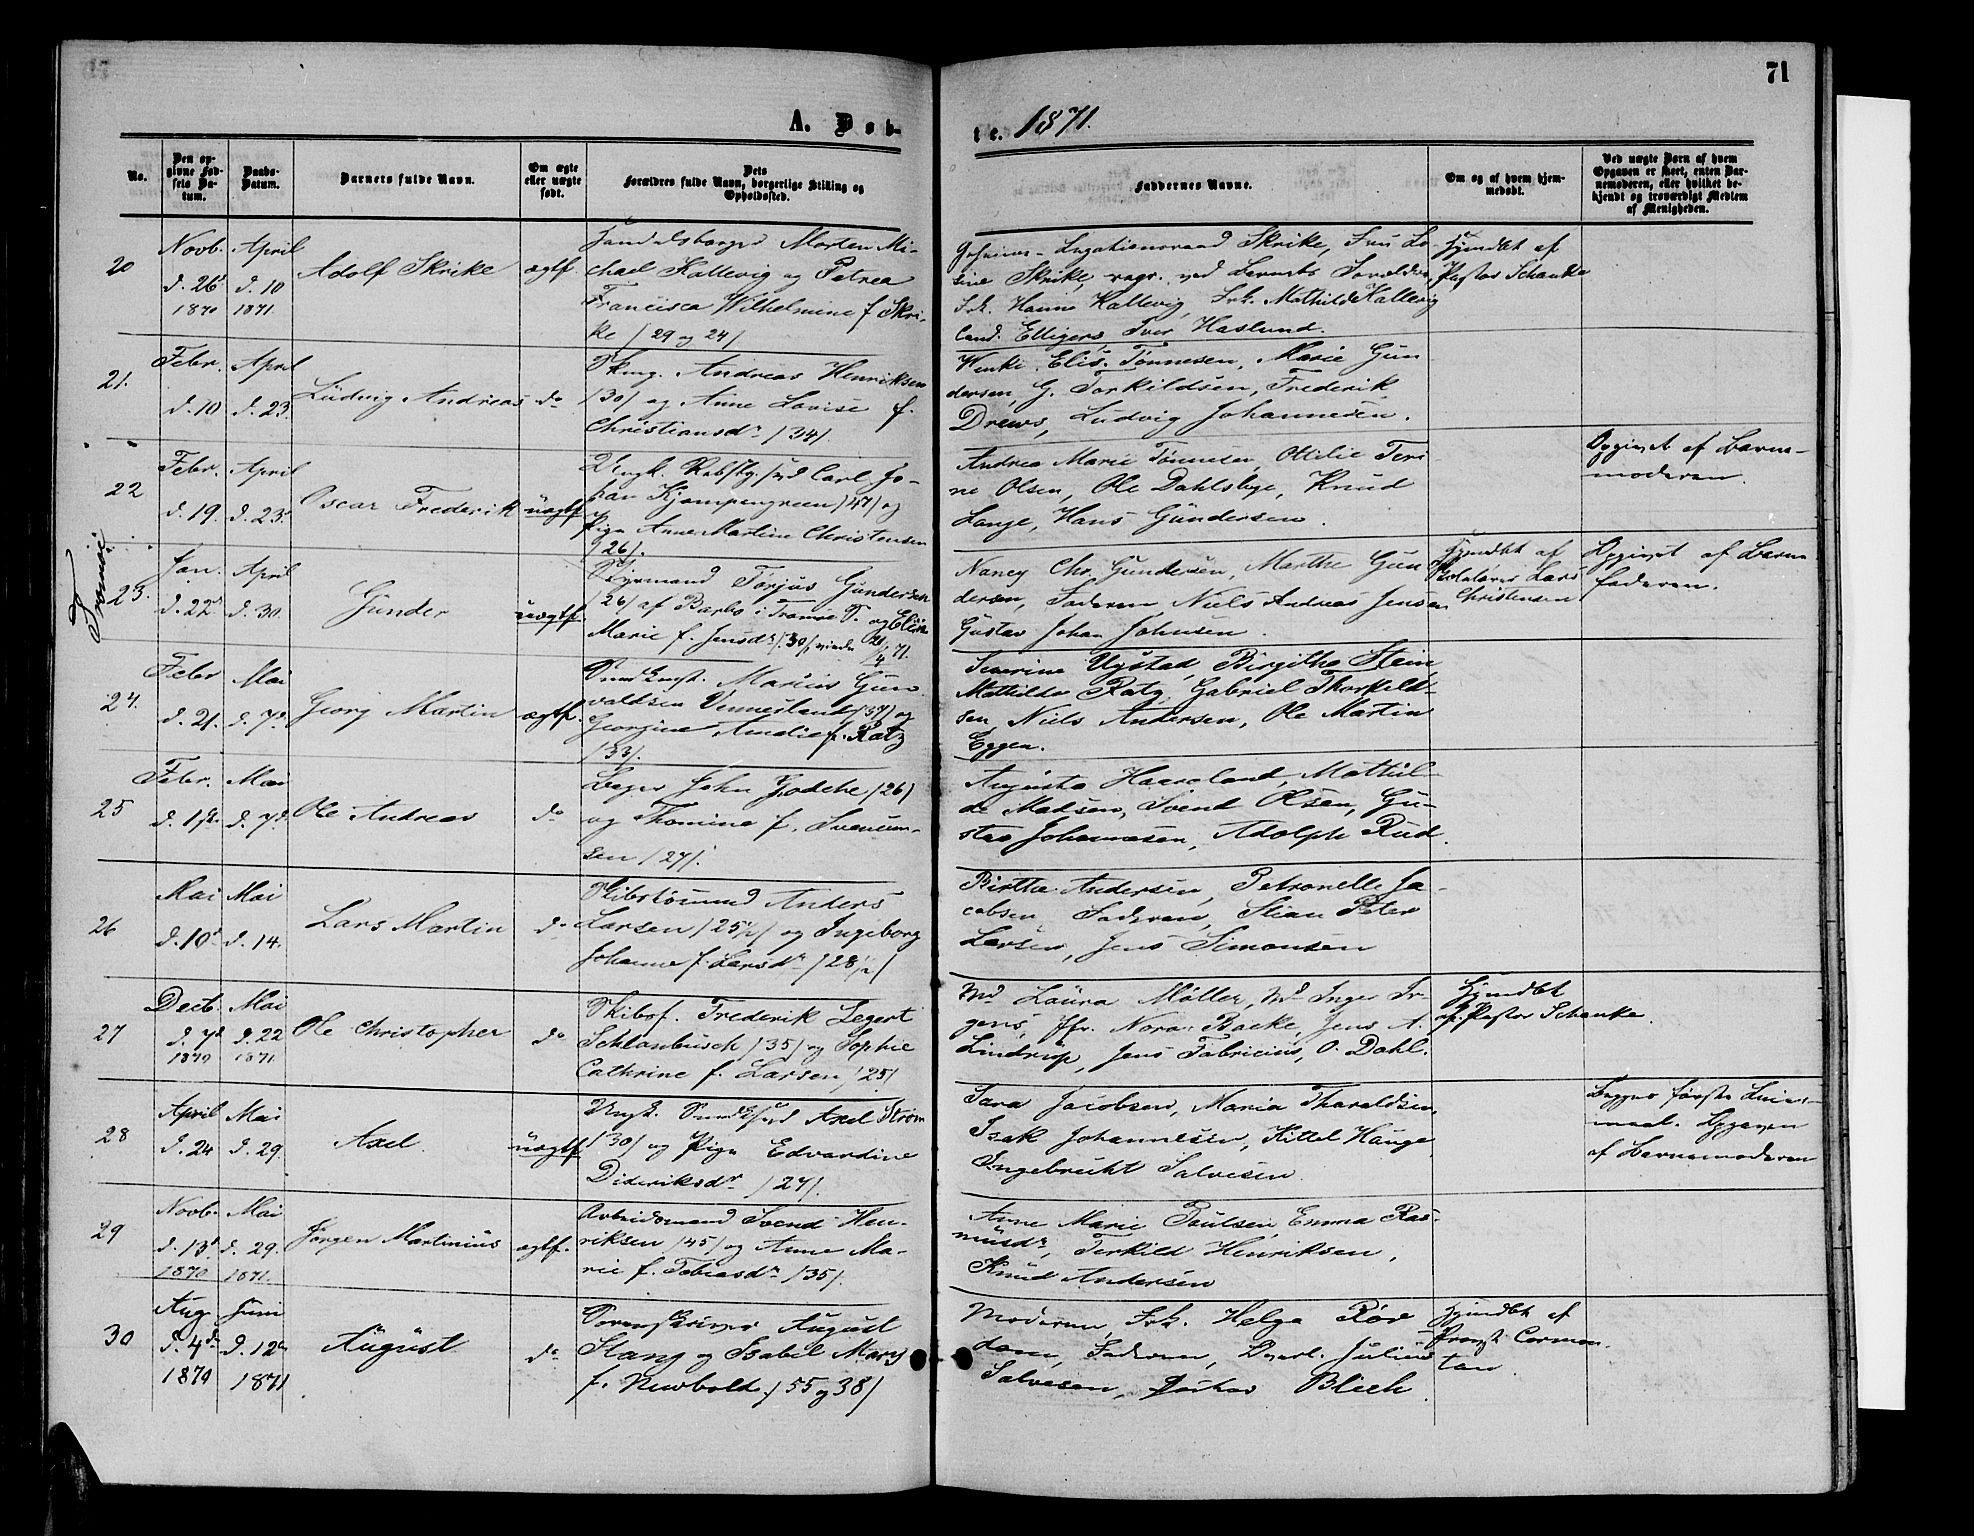 71
A. Døb-
te. 1871.
No.
Den op-
givne Fød-
sels Da-
tum.
Daabs-
Datum.
Barnets fulde Navn.
Om ægte
eller uægte
født.
Dets
Forældres fulde Navn, borgerlige Stilling og
Opholdssted.
Faddernes Navne.
Om og af hvem hjem-
medøbt.
Ved uægte Børn af hvem
Opgaven er skeet, enten Bar-
nemoderen, eller hvilket be-
kjendt og troværdigt Medlem
af Menigheden.
20
Novb.
d. 26
1870
April
d. 10
1871
Adolf Skrike
ægtf.
Handelsborger Morten Mi-
chael Kallevig og Petrea
Francisca Wilhelmine f. Skri-
ke /29 og 24/
Legationsraad Skrike, Fru Lo-
sine Skrike, ved Barnets Forældre,
Frk. Hanna Kallevig, Frk. Mathilde Kallevig
Cand. Elligers, Iver Haslund.
Hjemdbt af
Pastor Schanke
21.
Febr.
d. 10
April
d. 23
Ludvig Andreas
do
Andreas Henriksen
/30/ og Anne Lovise f.
Christiansdr /34/.
Wenke Elis. Tønnesen, Marie Gun
dersen, G. Torkildsen, Frederik
Drews, Ludvig Johannesen.
22
Febr.
d. 19.
April
d. 23
Oscar Frederik
uægtf
Ungk. Carl Jo-
han Kjempengreen /47/ og
Pige Anne Martine Christensen
/26/.
Andrea Marie Tønnesen, Ottilie Teri
ne Olsen, Ole Dahlsberge, Knud
Lange, Hans Gundersen.
Opgivet af Barne-
moderen.
Tromøe
23.
Jan.
d. 22
April
d. 30.
Gunder
uægtf.
Styrmand Torjus Gundersen
/26/ af Barbo i Tromøe P. og Elise
Marie f. Jensdr /30/, viede 21/4 71.
Nancy Chr. Gundersen, Marthe Gun
dersen, Faderen Niels Andreas Jensen
Gustav Johan Johnsen.
Hjemdbt af
Lars
Christensen
Opgivet af Barne
faderen.
24.
Febr
d. 21.
Mai
d. 7d
Georg Martin
ægtf.
Marius Gun
valdsen Vennesland /37/ og
Georgine Amalie f. Ratz
/33/.
Severine Ugstad, Birgithe Stein
Mathilde Ratz, Gabriel Thorkild-
sen, Niels Andersen, Ole Martin
Eggen.
25
Febr.
Mai
d. 7d
Ole Andreas
do
Bager John Godche /26/
og Thomine f. Svenum-
sen /27/.
Augusta Haaveland, Mathil-
de Madsen, Svend Olsen, Gu-
stav Johannesen, Adolph Rud.
26
Mai
d. 10d
Mai
d. 14.
Lars Martin
do
Skibstømmmd Anders
Larsen /25½/ og Ingeborg
Johanne f. Larsdr /28½/
Birthe Andersen, Petronelle Ja-
cobsen, Faderen, Stian Peter
Larsen, Jens Simonsen
27
Decb.
d. 7d
1870
Mai
d. 22
1871
Ole Christopher
do
Skibsf. Frederik Legert
Schlanbusch /35/ og Sophie
Cathrine f. Larsen /25/
Md Laura Møller, Md Inger Ir-
gens, Jfr. Nora Backe, Jens A.
Lindrup, Jens Fabricius, O. Dahl.
Hjemdbt
af Pastor Schanke.
28
April
d. 24
Mai
d. 29.
Axel
uægtf
Ungk. Axel Strøm
/30/ og Pige Edvardine
Dideriksdr /27/.
Sara Jacobsen, Maria Tharaldsen
Isak Johannesen, Kittel Hauge
Ingebrikt Salvesen.
Begges første Leier-
maal. Opgaven
af Barnemoderen
29
Novb.
d. 13d
1870
Mai
d. 29.
1871.
Jørgen Martinius
ægtf.
Arbeidsmand Svend Hen-
riksen /45/ og Anne Ma-
rie f. Tobiasdr /35/.
Anne Marie Poulsen, Emma Ras-
musdr, Terkild Henriksen,
Knud Andersen
30
Aug
d. 4de
1870
Juni
d. 12te
1871
August
do
Sorenskriver August
Stang og Isabel Mary
f. Newbold /55 og 38/
Moderen, Frk. Helga Rør
dam, Faderen, Overl. Julius
Salvesen, Blich.
Hjemdbt af
Provst Corman
tan